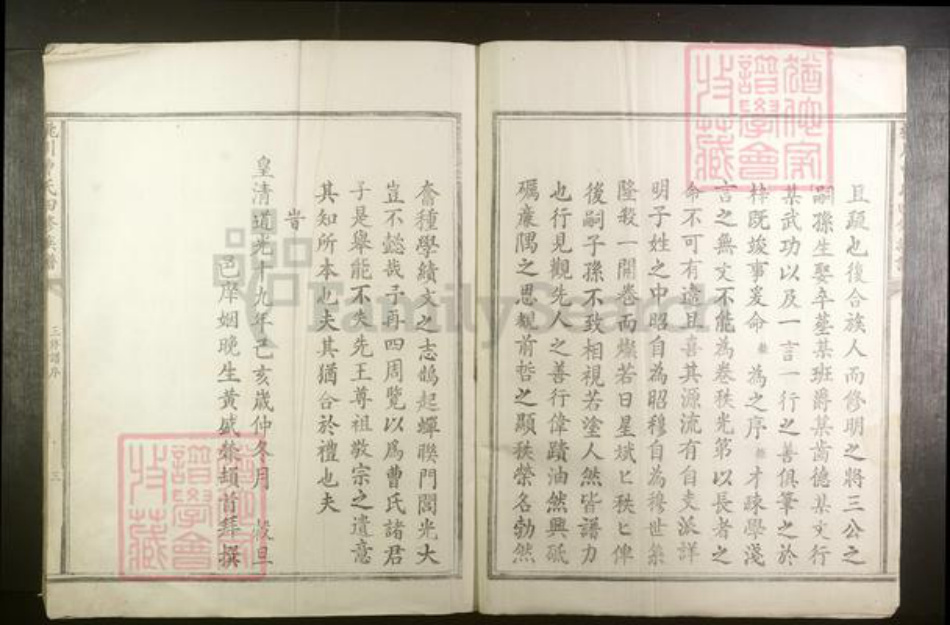 且疑也後合族人而修明之將三公之
嗣孫生娶卒墓某班爵某齒德某文行
某武功以及一言一行之善俱筆之於
梓既竣事爰命 為之序 才疎學淺
言之無文不能為卷秩光第以長者之
命不可有違且喜其源流有自支派詳
明子姓之中昭自為昭穆自為穆世系
隆殺一開卷而燦若日星斌匕秩匕俾
後嗣子孫不致相視若塗人然皆譜力
也行見觀先人之善行偉蹟油然興砥
礪廉隅之思 前哲之顯秩榮名勃然
奮種學績文之志鵲起蟬聯門閭光大
豈不懿哉予再四周覽以為曹氏諸君
子是舉能不失先王尊祖敬宗之遺意
其知所本也夫其猶合於禮也夫
旹
皇清道光十九年己亥歲仲冬月 穀旦
邑庠姻晚生黃 頓首拜撰
氏四修族譜
三修譜序
三
猶他家
譜學會
收藏
猶他家
譜學會
收藏
FamilySearch